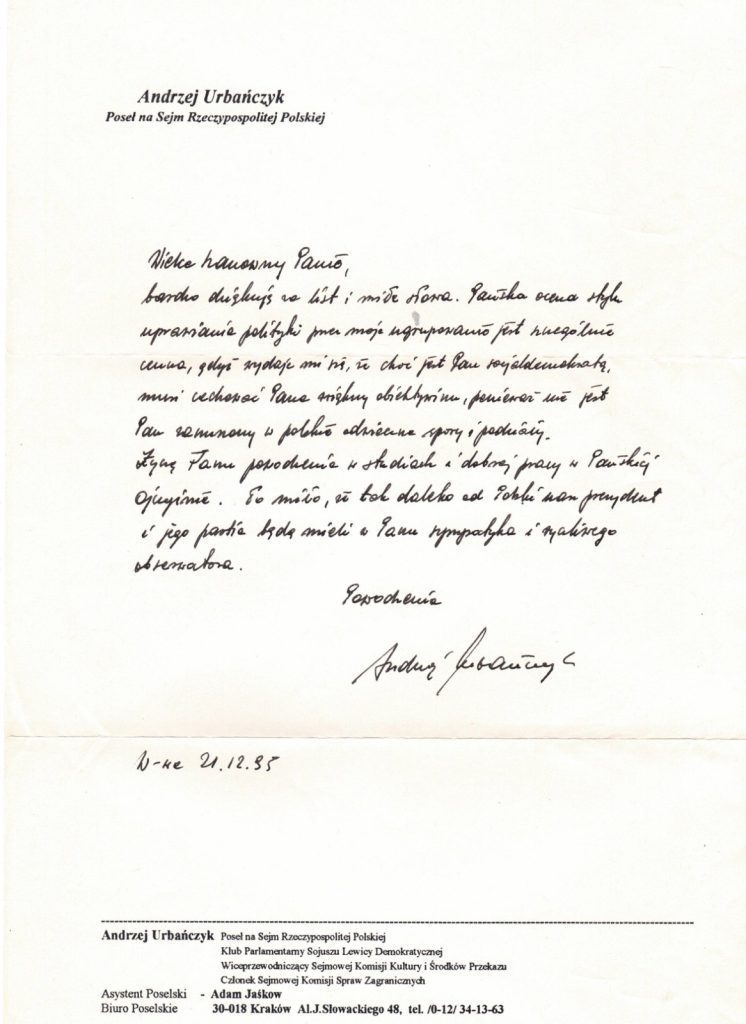 Andrzej Urbańczyk
Poseł na Sejm Rzeczypospolitej Polskiej
Wielce Szanowny Panie,
bardzo dziękuję za list i miłe słowa. Pańska ocena stylu
uprawiania polityki przez moje ugrupowanie jest szczególnie
cenna, gdyż wydaje mi się, że choć jest Pan socjaldemokratą,
musi cechować Pana większy obiektywizm, ponieważ nie jest
Pan zanurzony w polskie odwieczne spory i podziały.
Życzę Panu powodzenia w studiach i dobrej pracy w Pańskiej
ojczyźnie. To miło, że tak daleko od Polski nasz prezydent
i jego partia będą mieli w Panu sympatyka i życzliwego
obserwatora.
Powodzenia
Andrzej Urbańczyk
W-wa 21.12.95
Andrzej Urbańczyk Poseł na Sejm Rzeczypospolitej Polskiej
Klub Parlamentarny Sojuszu Lewicy Demokratycznej
Wiceprzewodniczący Sejmowej Komisji Kultury i Środków Przekazu
Członek Sejmowej Komisji Spraw Zagranicznych
Asystent Poselski - Adam Jaśkow
Biuro Poselskie 30-018 Kraków Al.J.Słowackiego 48, tel. /0-12/ 34-13-63